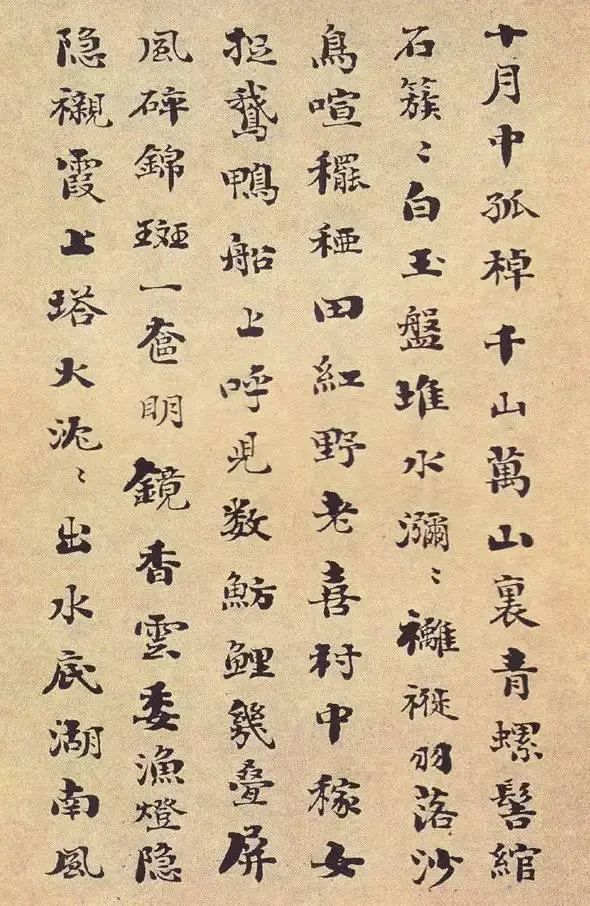 十月中孤棹千山萬山裏青螺髻綰
石簇〻白玉盤堆水瀰〻襬褷羽落沙
鳥喧䆉稏田紅野老喜村中稼女
捉鵝鴨船上呼兒数魴鯉幾疊屏
風碎錦斑一奩明鏡香雲委漁燈隐
隐襯霞上塔火泥〻出水底湖南風